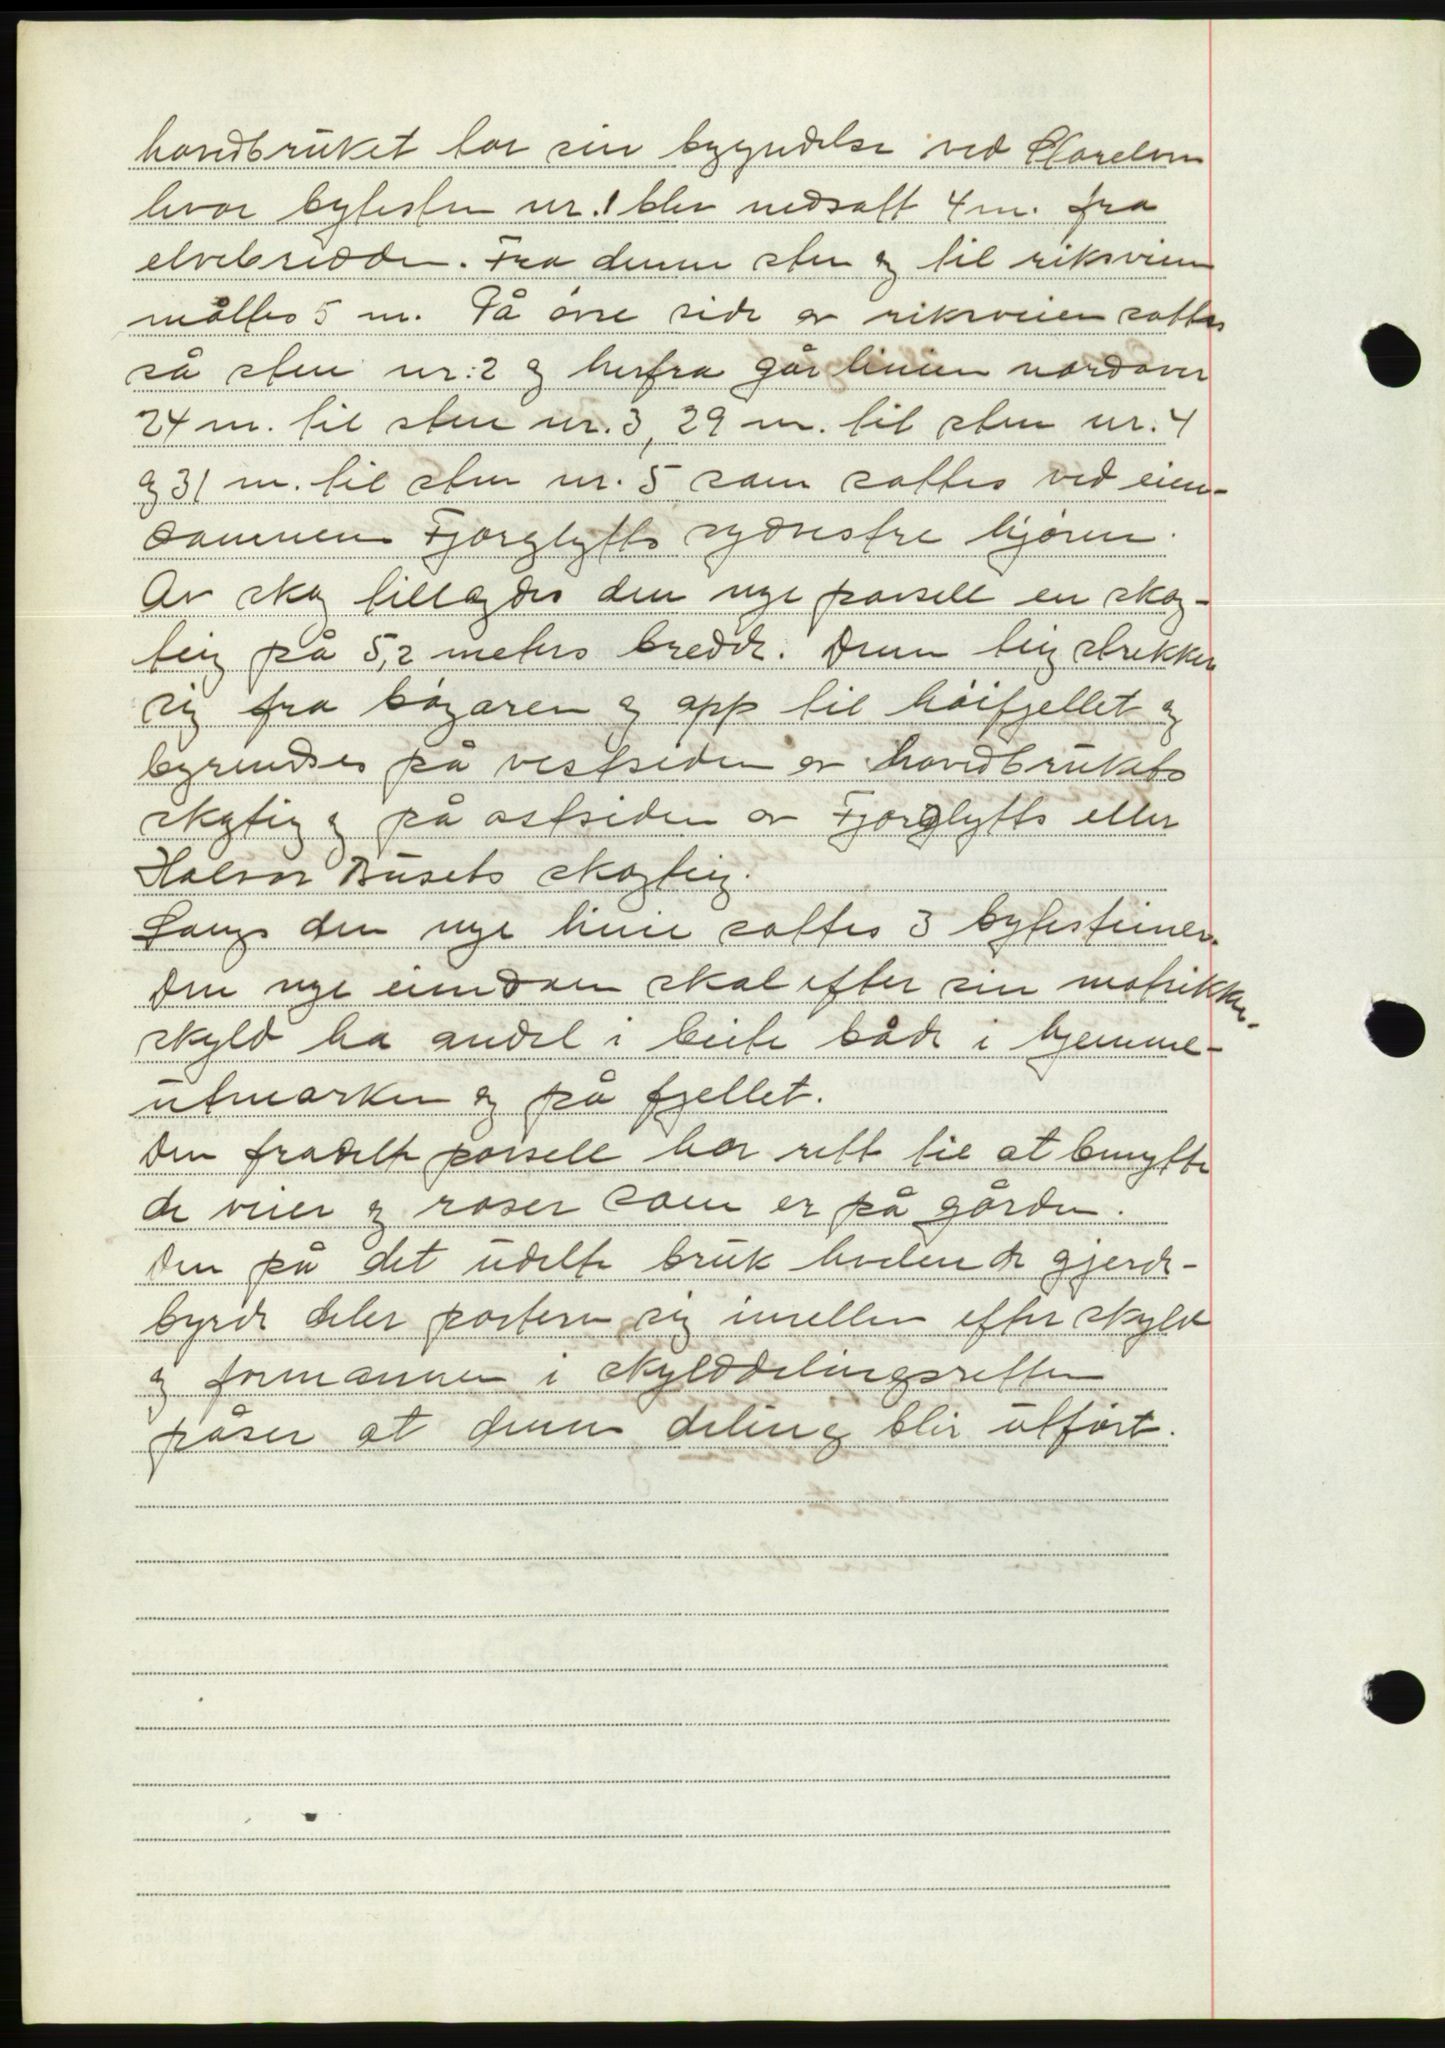 hovedbruket tar sin begyndelse ved Storelven
hvor bytesten nr. 1 blev nedsatt 4 m. fra
elvebredden. Fra denne sten og til riksveien
måltes 5 m. På övre side av riksveien sattes
så sten nr: 2 og herfra går linien nordover
24 m. til sten nr. 3, 29 m. til sten nr. 4
og 31 m. til sten nr. 5 som sattes ved eien-
dommen Fjorgløtts sydvestre hjörne.
Av skog tillagdes den nye parsell en skog-
teig på 5,2 meters bredde. Denne teig strekker
sig fra bögaren og opp til höifjellet og
begrendses på vestsiden av hovedbrukets
skogteig og på østsiden av Fjorgløtts eller
Halvor Busets skogteig.
Langs den nye linie sattes 3 bytesteiner.
Den nye eiendom skal efter sin matrikkel-
skyld ha andel i beite både i hjemme-
utmarken og på fjellet.
Den fradelte parsell har rett til at benytte
de veier og raser som er på gården.
Den på det udelte bruk hvilende gjerde-
byrde deler partene sig imellem efter skyld
og formannen i skylddelingsretten
påser at denne deling blir utfört.